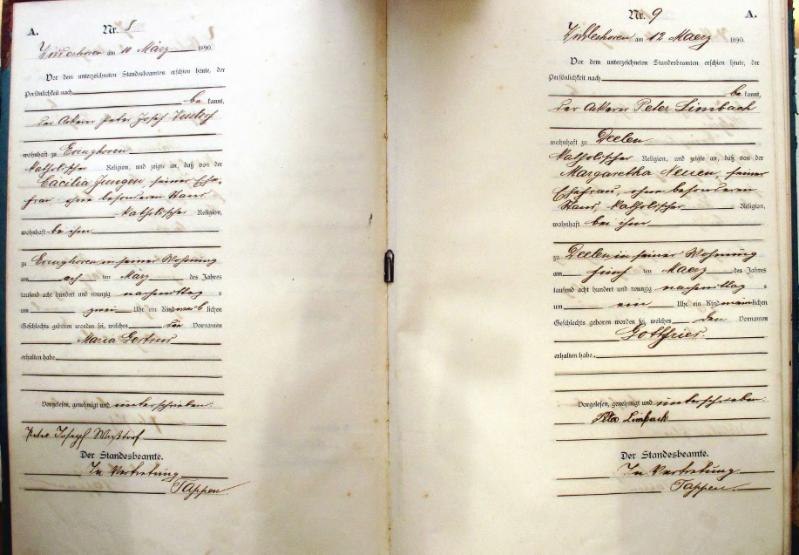 A.
Nr. 8
am 10 März 1890.
Vor dem unterzeichneten Standesbeamten erschien heute, der
Persönlichkeit nach
be kannt,
der Ackerer Peter Josef
wohnhaft zu
katholischer Religion, und zeigte an, daß von der
Cäcilia Jungen, seiner Ehe-
frau, ohne besonderen Stand
katholischer Religion,
wohnhaft bei ihm
zu in seiner Wohnung
am März des Jahres
tausend acht hundert und neunzig nachmittag s
um zwei Uhr ein Kind weib lichen
Geschlechts geboren worden sei, welches den Vornamen
Maria Gertrud
erhalten habe.
Vorgelesen, genehmigt und unterschrieben.
Peter Joseph
Der Standesbeamte.
In Vertretung
Tappen
Nr. 9
A.
am 12 Maerz 1890.
Vor dem unterzeichneten Standesbeamten erschien heute, der
Persönlichkeit nach
be kannt,
der Ackerer Peter Limbach
wohnhaft zu Deelen
katholischer Religion, und zeigte an, daß von der
Margaretha Neuen, seiner
Ehefrau, ohne besonderen
Stand, katholischer Religion,
wohnhaft bei ihm
zu Deelen in seiner Wohnung
am fünf ten Maerz des Jahres
tausend acht hundert und neunzig nachmittag s
um ein Uhr ein Kind männlichen
Geschlechts geboren worden sei, welches den Vornamen
Gottfried
erhalten habe.
Vorgelesen, genehmigt und unterschrieben
Peter Limbach
Der Standesbeamte.
In Vertretung
Tappen